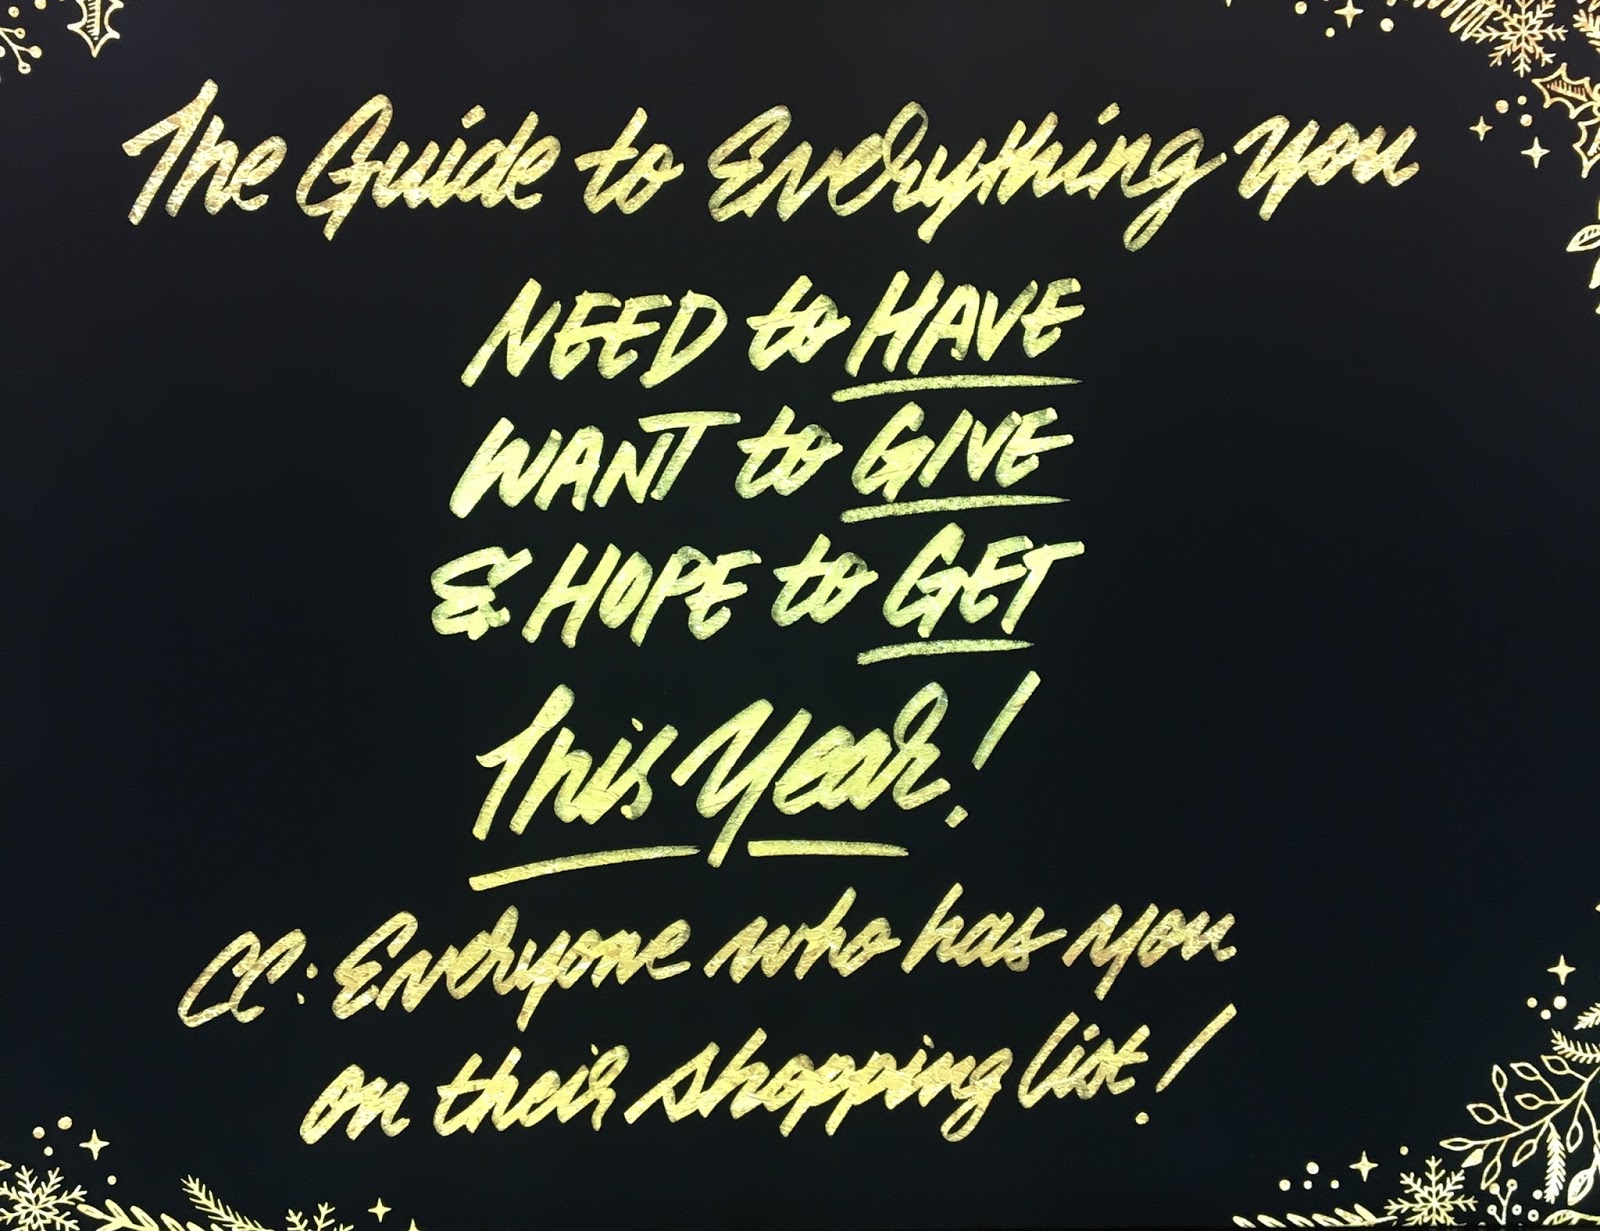 The Guide to Everything you
NEED to HAVE
WANT to GIVE
& HOPE to GET
This Year!
CC: Everyone who has you
on their shopping list!